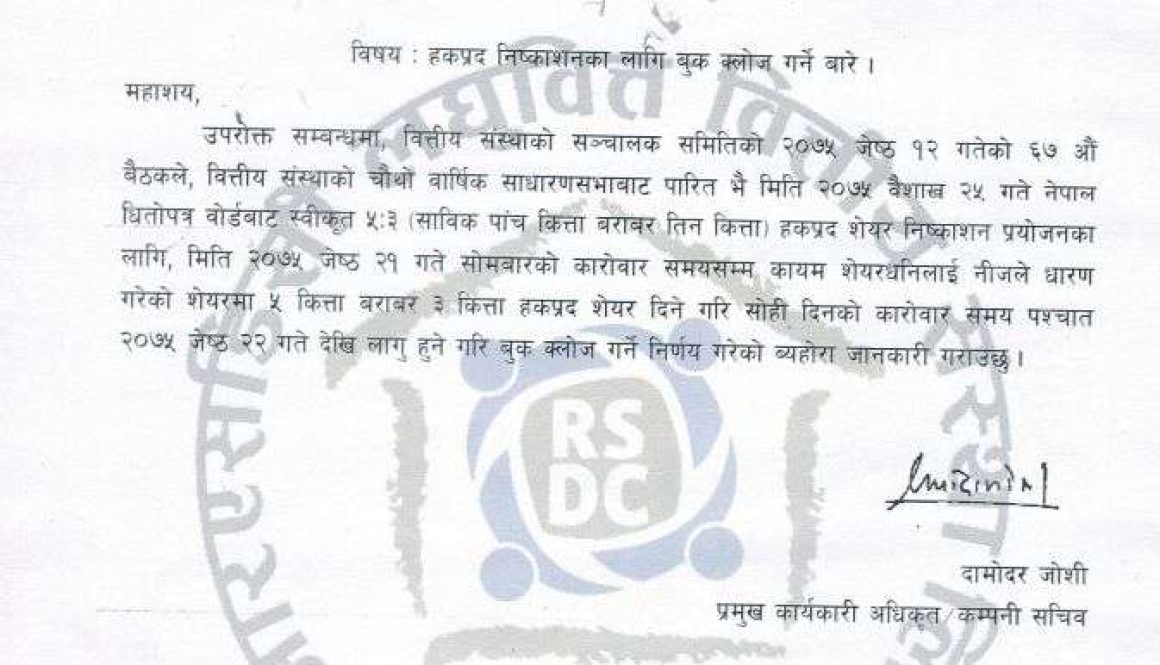 विषय : हकप्रद निष्काशनका लागि बुक क्लोज गर्ने बारे ।
महाशय,
उपरोक्त सम्बन्धमा, वित्तीय संस्थाको सञ्चालक समितिको २०७५ जेष्ठ १२ गतेको ६७ औं
बैठकले, वित्तीय संस्थाको चौथो वार्षिक साधारणसभाबाट पारित भै मिति २०७५ वैशाख २५ गते नेपाल
धितोपत्र वोर्डबाट स्वीकृत ५:३ (साविक पांच कित्ता बराबर तिन कित्ता) हकप्रद शेयर निष्काशन प्रयोजनका
लागि, मिति २०७५ जेष्ठ २१ गते सोमबारको कारोवार समयसम्म कायम शेयरधनिलाई नीजले धारण
गरेको शेयरमा ५ कित्ता बराबर ३ कित्ता हकप्रद शेयर दिने गरि सोही दिनको कारोवार समय पश्चात
२०७५ जेष्ठ २२ गते देखि लागु हुने गरि बुक क्लोज गर्ने निर्णय गरेको ब्यहोरा जानकारी गराउछु ।
RS
DC
दामोदर जोशी
प्रमुख कार्यकारी अधिकृत/कम्पनी सचिव